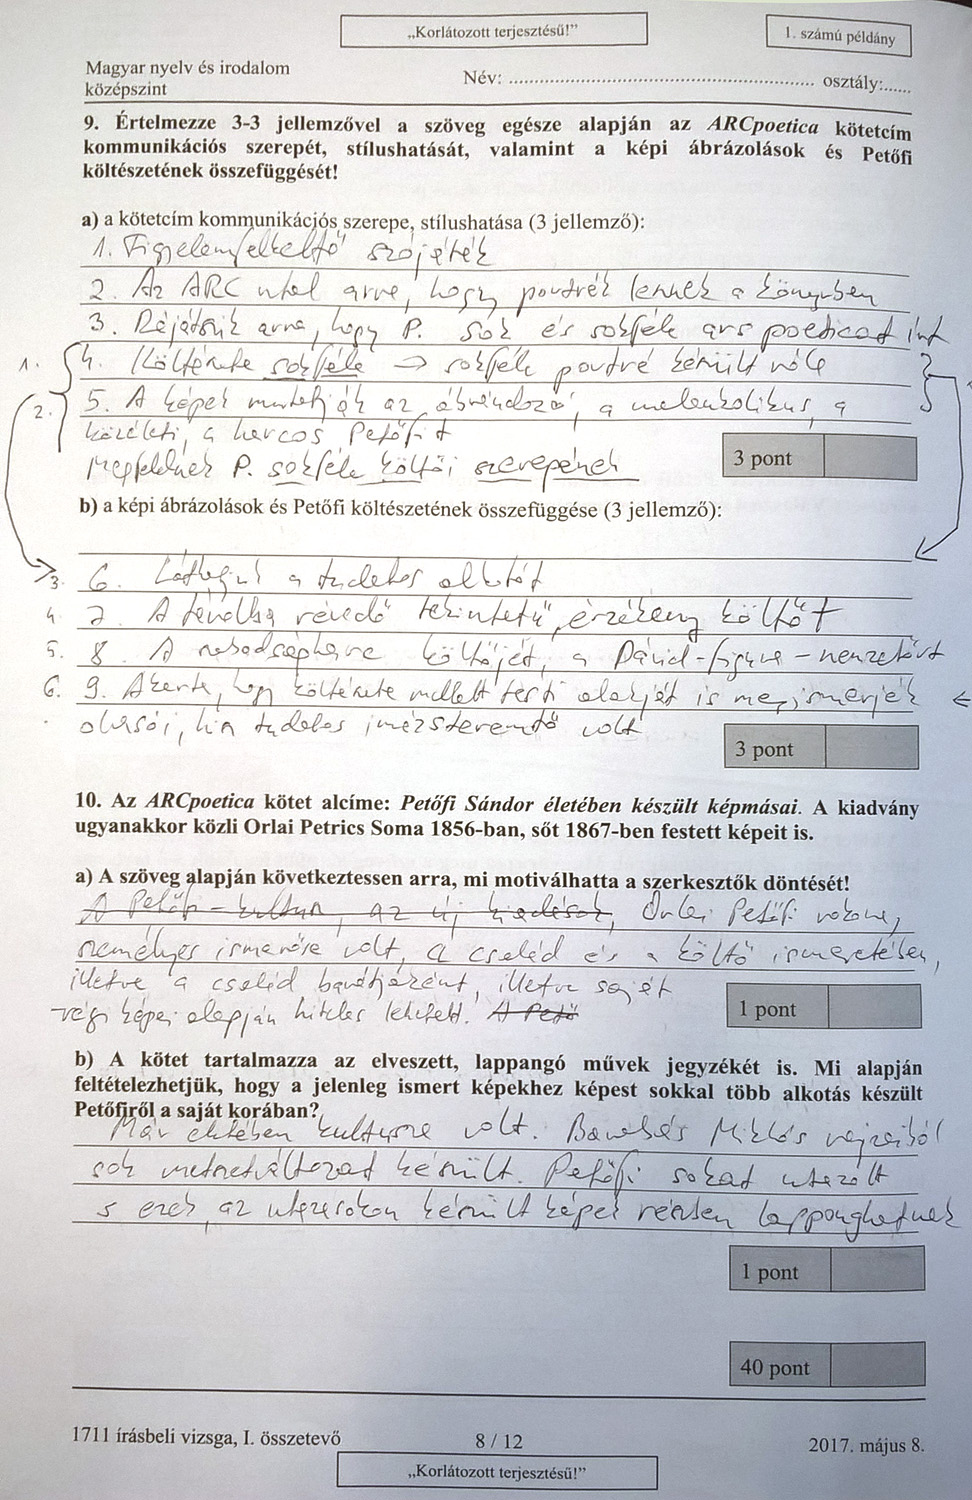 „Korlátozott terjesztésű!”
1. számú példány
Magyar nyelv és irodalom
középszint
Név: ........................................................... osztály:......
9. Értelmezze 3-3 jellemzővel a szöveg egésze alapján az ARCpoetica kötetcím
kommunikációs szerepét, stílushatását, valamint a képi ábrázolások és Petőfi
költészetének összefüggését!
a) a kötetcím kommunikációs szerepe, stílushatása (3 jellemző):
1. Figyelemfelkeltő szójáték
2. Az ARC utal arra, hogy portrék lennek a könyvben
3. Rájátszik arra, hogy P. sok és sokféle ars poeticát írt
1. 4. Költészete sokféle → sokféle portré készült róla
2. 5. A képek mutatják az ábrándozó, a melankolikus, a
közéleti, a harcos Petőfit
Megfelelnek P. sokféle költői szerepének
3 pont
b) a képi ábrázolások és Petőfi költészetének összefüggése (3 jellemző):
3. 6. Láthatjuk a tudatos alkotót
4. 7. A távolba révedő tekintetű, érzékeny költőt
5. 8. A szabadságharc költőjét, a Dávid-figura – nemzetőrt
6. 9. Akarta, hogy költészete mellett testi alakját is megismerjék
olvasói, hisz tudatos imázsteremtő volt
3 pont
10. Az ARCpoetica kötet alcíme: Petőfi Sándor életében készült képmásai. A kiadvány
ugyanakkor közli Orlai Petrics Soma 1856-ban, sőt 1867-ben festett képeit is.
a) A szöveg alapján következtessen arra, mi motiválhatta a szerkesztők döntését!
A Petőfi-kultusz, az új kiadások, Orlai Petőfi rokona,
személyes ismerőse volt, a család és a költő ismeretében,
illetve a család barátjaként, illetve saját
régi képei alapján hiteles lehetett. A Pető
1 pont
b) A kötet tartalmazza az elveszett, lappangó művek jegyzékét is. Mi alapján
feltételezhetjük, hogy a jelenleg ismert képekhez képest sokkal több alkotás készült
Petőfiről a saját korában?
Már életében kultusza volt. Barabás Miklós rajzaiból
sok metszetváltozat készült. Petőfi sokat utazott
s ezek, az utazásokon készült képek részben lapponghatnak
1 pont
40 pont
1711 írásbeli vizsga, I. összetevő
8 / 12
2017. május 8.
„Korlátozott terjesztésű!”